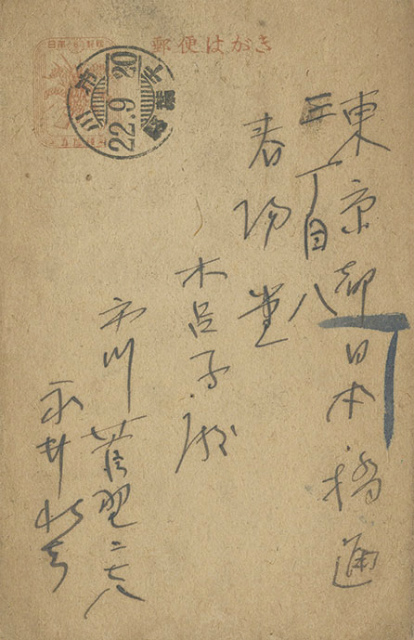 郵便はがき
市川
22.9.20
千葉県
東京都日本橋通
三丁目八
春陽堂
木呂子殿
市川菅野二七八
永井壮吉